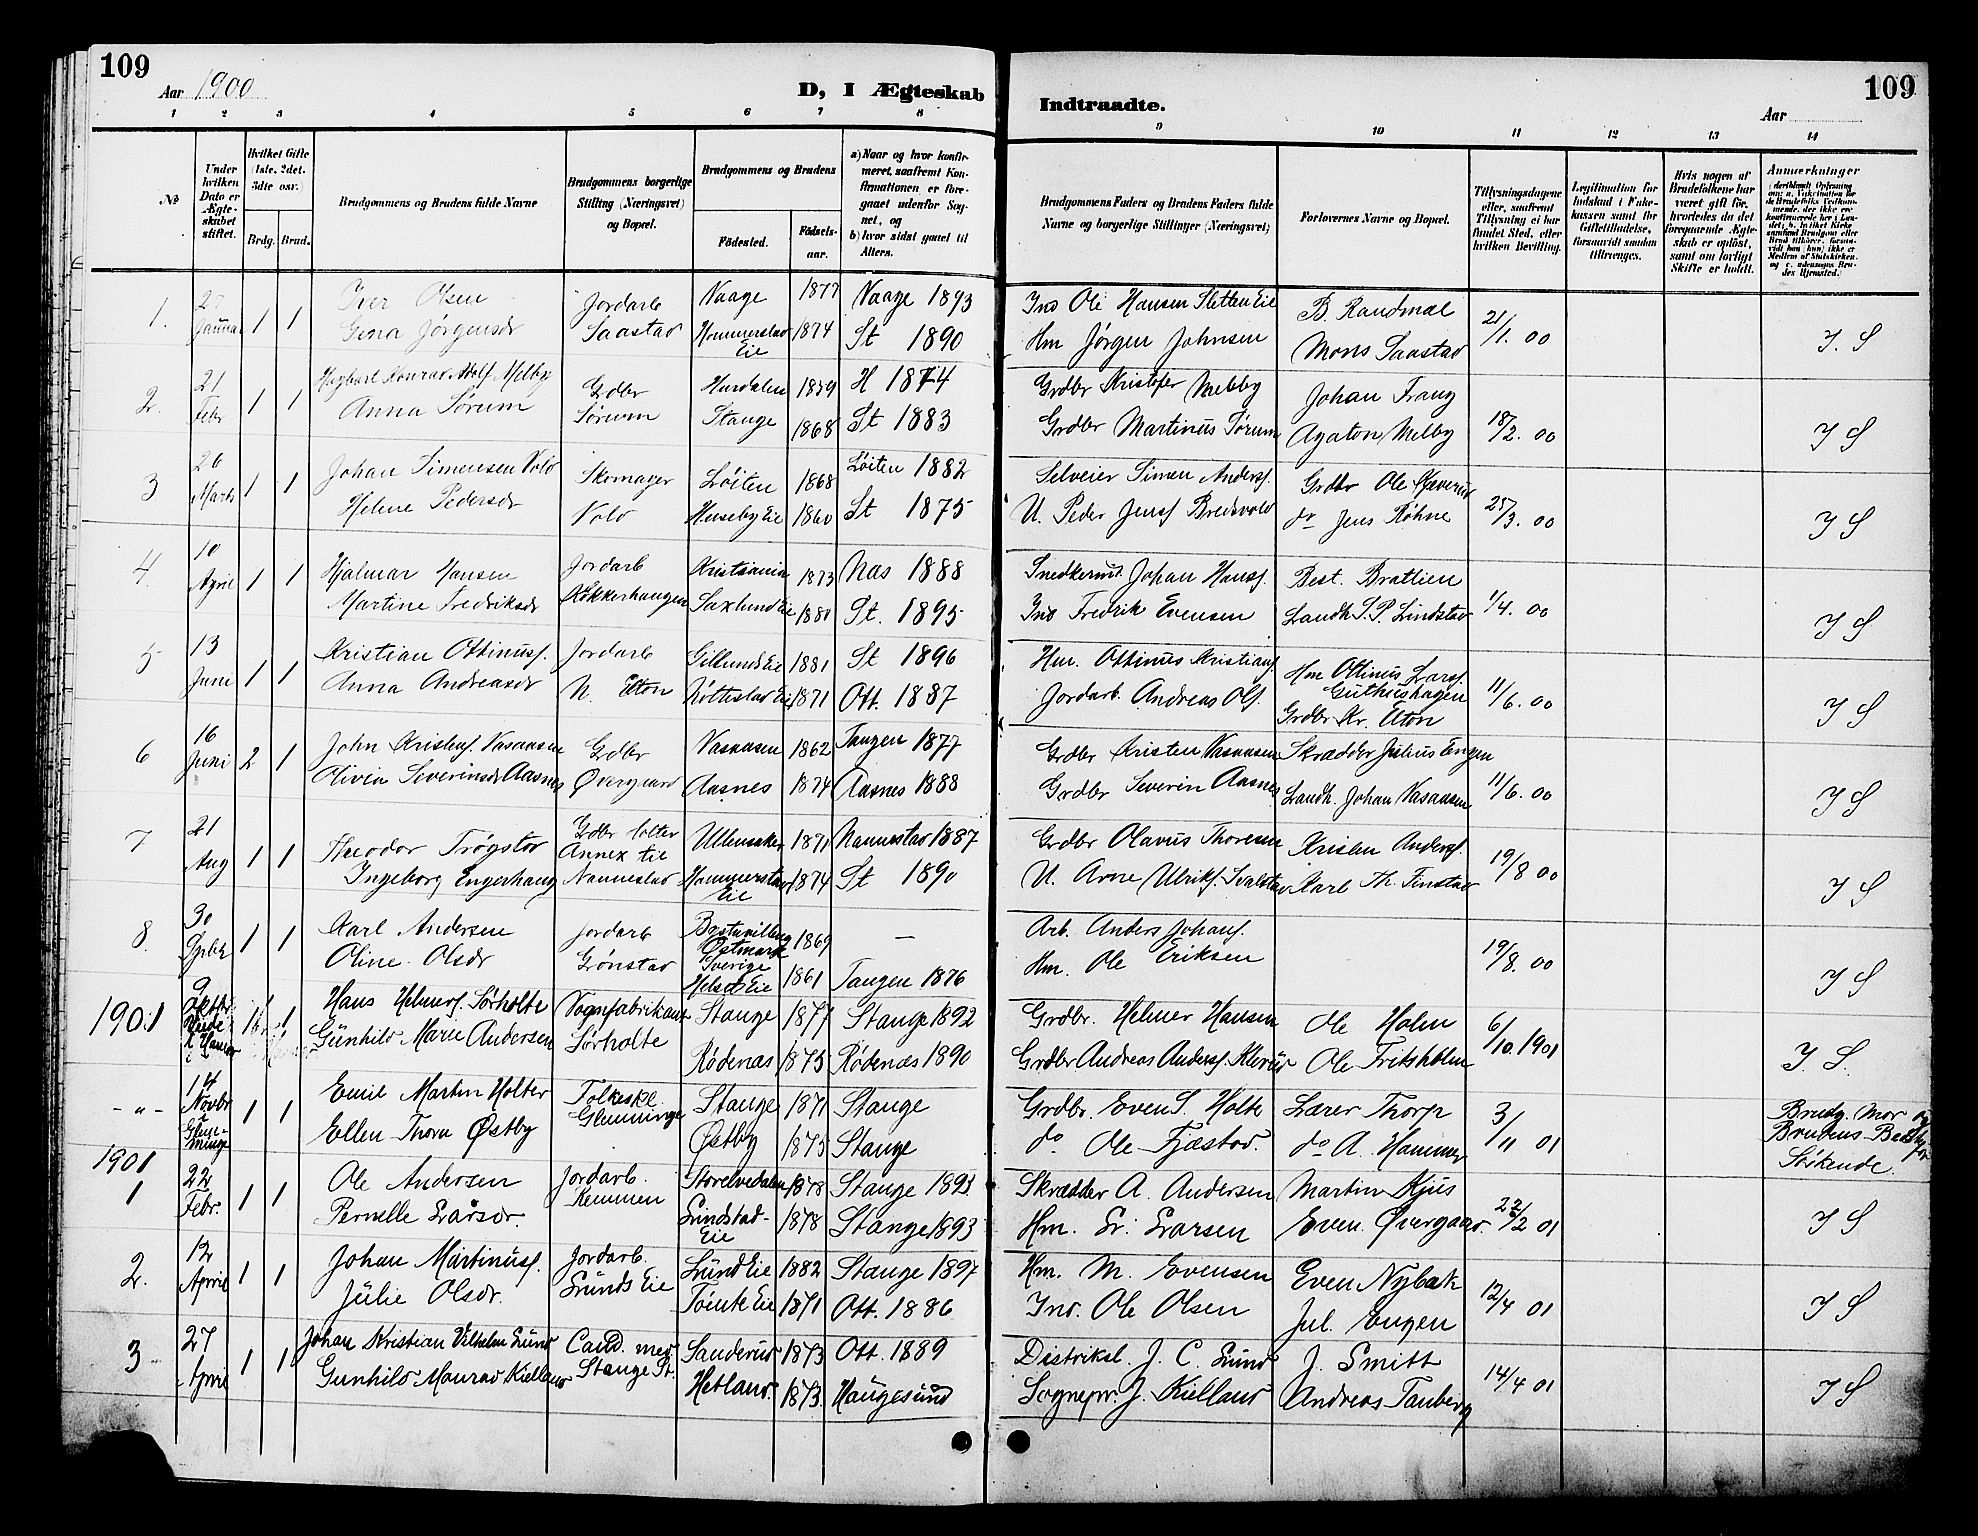 109
Aar 1900
D, I Ægteskab
Indtraadte.
109
Aar
1 2 3 4 5 6 7 8 9 10 11 12 13 14
No
Under hvilken Dato er Ægteskabet stiftet.
Hvilket Gifte (1ste, 2det, 3die osv.)
Brdg. Brud.
Brudgommens og Brudens fulde Navne
Brudgommens borgerlige Stilling (Næringsvei) og Bopæl.
Brudgommens og Brudens
Fødested.
Fødselsaar.
a) Naar og hvor konfirmeret, saafremt Konfirmationen er foregaaet udenfor Sognet, og
b) hvor sidst gaaet til Alters.
Brudgommens Faders og Brudens Faders fulde Navne og borgerlige Stillinger (Næringsvei)
Forlovernes Navne og Bopæl.
Tillysningsdagene eller, saafremt Tillysning ei har fundet Sted, efter hvilken Bevilling.
Legitimation for Indskud i Enkekassen samt for Giftetilladelse, forsaavidt saadan tiltrænges.
Hvis nogen af Brudefolkene har været gift før, hvorledes da det foregaaende Ægteskab er opløst, samt om lovligt Skifte er holdt.
Anmærkninger
1. Januar 1 1 Iver Olsen Jordarb Vaage 1877 Vaage 1893 Ind Ole Hansen Sletten Eie B. Randmæl 21/1. 00
Gina Jørgensdr Saastad Hommerstad Eie 1874 St 1890 Hm Jørgen Johnsen Mons Saastad I. S
2. 21 Febr 1 1 Hagbart Konrad Adolf Melby Grdbr Hurdalen 1859 H 1874 Grdbr Kristofer Melby Johan Frang 18/2. 00
Anna Sørum Sørum Stange 1868 St 1883 Grdbr Martinus Sørum Agaton Melby I S
3 26 Marts 1 1 Johan Simensen Vold Skomager Løiten 1868 Løiten 1882 Selveier Simen Anders. Grdbr Ole
Helene Pedersdr Vold Huseby Eie 1860 St 1875 U. Peder Jens. Bredvold do Jens Røhne 25/3. 00 I S
4. 10 April 1 1 Hjalmar Hansen Jordarb Kristiania 1873 Nas 1888 Snedkerm. Johan Hans. Best. Brattlien 1/4. 00
Martine Fredriksdr Kokkerhaugen Saxlund Eie 1881 St. 1895 Ind Fredrik Evensen Landh. S. P. Lindstad I S
5 13 Juni 1 1 Kristian Ottinus. Jordarb Gillund Eie 1881 St 1896 Hm. Ottinus Kristians. Hm Ottinus Lars. Guthushagen 11/6. 00
Anna Andreasdr N. Elton Røttestad Eie 1871 Ott. 1887 Jordarb. Andreas Ols. Grdbr Kr. Elton I S
6 16 Juni 2 1 John Kristens. Vasaasen Grdbr Vasaasen 1862 Tangen 1877 Grdbr Kristen Vasaasen Skrædder Julius Engen 11/6. 00
Olivia Severinsdr Aasnes Øvergaard Aasnes 1874 Aasnes 1888 Grdbr Severin Aasnes Landh. Johan Vasaasen I S
7 21 Aug 1 1 Theodor Trøgstad Grdbr Holter Annex Eie Ullensaker 1871 Nannestad 1887 Grdbr Olavus Thoresen Kristen Anders. 19/8 00
Ingeborg Engerhaug Nannestad Hommerstad Eie 1874 St 1890 U. Arne Ulriks. Svalstad Karl Th. Finstad I S
8. 30 Sptbr 1 1 Karl Andersen Jordarb Østmark Sverige 1869 — Arb. Anders Johans. 19/8. 00
Oline Olsdr Grønstad Helset Eie 1861 Tangen 1876 Hm. Ole Eriksen I S
1901 9 Oktbr 1 Hans Helmers. Sørholte Vognfabrikant Stange 1877 Stange 1892 Grdbr. Helmer Hansen Ole Holm 6/10. 1901
Gunhild Marie Andersen Sørholte Rødenæs 1875 Rødenæs 1890 Grdbr Andreas Anders. Klerud Ole Fritsholm I S.
- " - 14 Novbr Glemminge 1 1 Emil Martin Holter Folkeskl. Glemminge Stange 1871 Stange Grdbr. Even S. Holte Lærer Thorp 3/11 01
Ellen Thora Østby Østby 1875 Stange do Ole Fjæstad. do A. Hammer Brudg. Mor og Brudens
1901
1 22 Febr. 1 1 Ole Andersen Jordarb. Storelvedalen 1878 Stange 1893 Skrædder A. Andersen Martin Kjus 22/2 01
Pernelle Larsdr. Remmen Lindstad-Eie 1878 Stange 1893 Hm. Lr: Larsen Even Øvergaard. I S
2. 12 April 1 1 Johan Martinus. Jordarb. Lund Eie 1882 Stange 1897 Hm. M. Evensen Even Nybak 12/4 01
Julie Olsdr. Lunds Eie Tomte Eie 1871 Ott. 1886 Ind. Ole Olsen Jul. Engen I S
3 27 April 1 1 Johan Kristian Vilhelm Lund Cand. med Sanderud 1873 Ott. 1889 Distriktsl. J. C. Lund J. Smitt 14/4 01
Gunhild Monrad Kielland Stange St. Hetland. 1873 Haugesund Sognepr. J. Kielland Andreas Tauberg I S